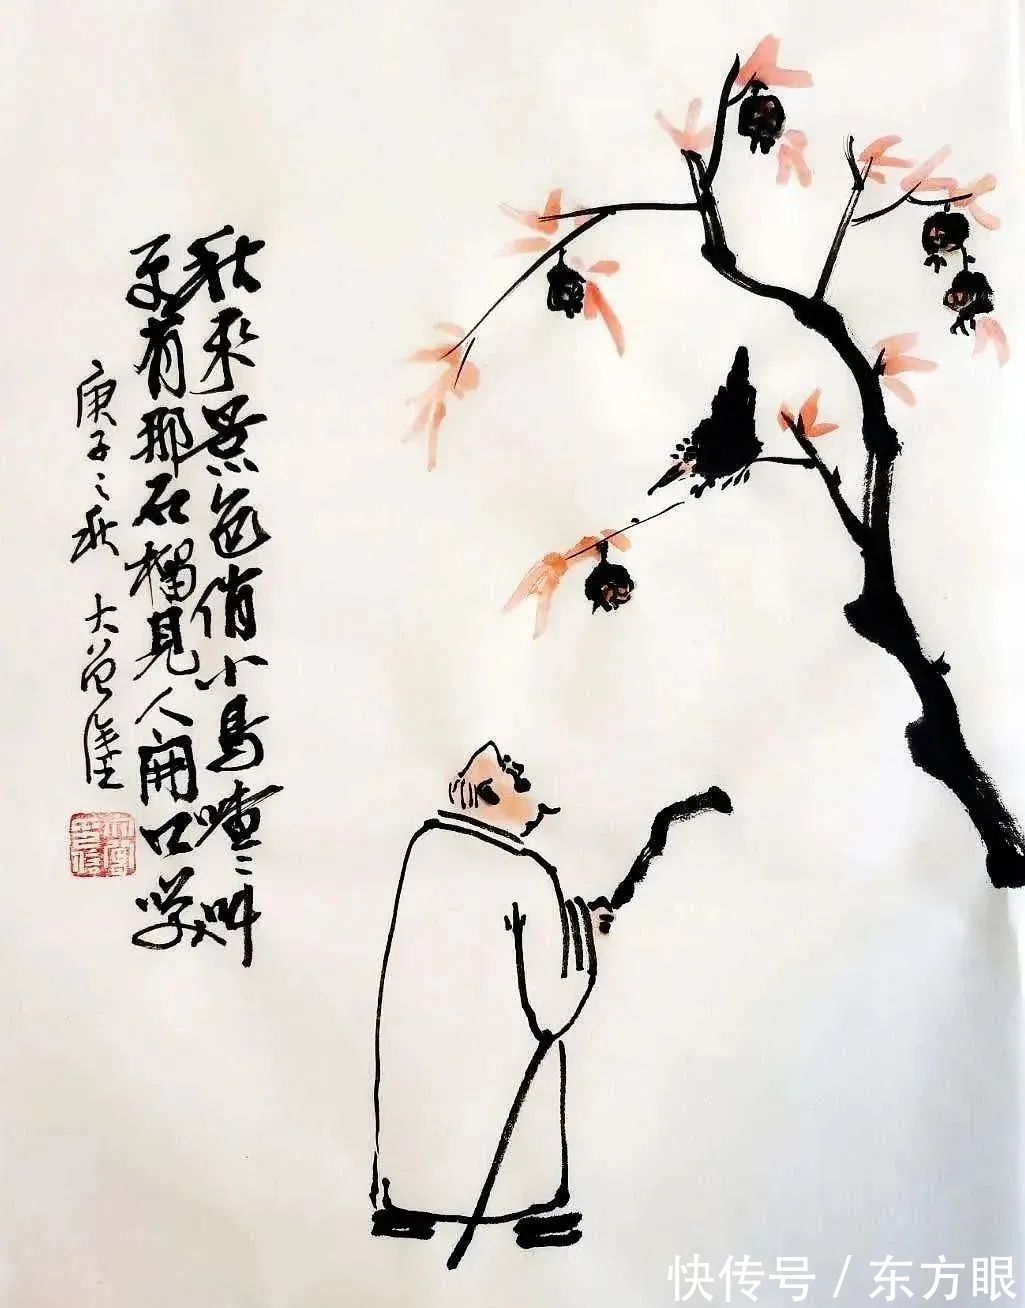 秋来景色俏小鸟喳〻叫
更有那石榴见人开口笑
庚子之秋 大
快传号 / 东方眼